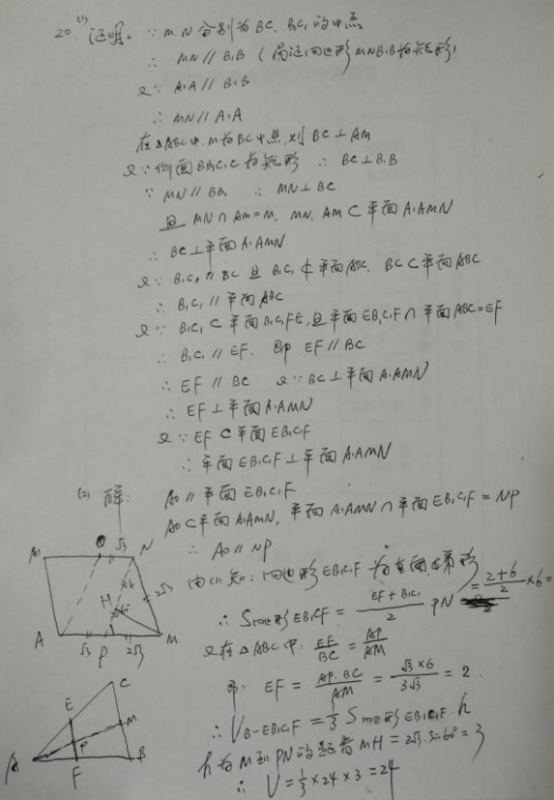 20. (1) 证明: ∵ M, N 分别为 BC, B₁C₁ 的中点
∴ MN // B₁B
又∵ A₁A // B₁B
∴ MN // A₁A
在△ABC中, M为BC中点, 则 BC⊥AM
又∵侧面BB₁C₁C为矩形 ∴ BC⊥B₁B
∵ MN // BB₁ ∴ MN⊥BC
且 MN∩AM=M, MN, AM⊂平面A₁AMN
∴ BC⊥平面A₁AMN
又∵ B₁C₁ // BC 且 B₁C₁⊄平面ABC, BC⊂平面ABC
∴ B₁C₁ // 平面ABC
又∵ B₁C₁⊂平面B₁C₁FE, 且平面EB₁C₁F∩平面ABC=EF
∴ B₁C₁ // EF. 即 EF // BC
∴ EF // BC 又∵ BC⊥平面A₁AMN
∴ EF⊥平面A₁AMN
又∵ EF⊂平面EB₁C₁F
∴ 平面EB₁C₁F⊥平面A₁AMN
(2) 解: AO // 平面EB₁C₁F
AO⊂平面A₁AMN, 平面A₁AMN∩平面EB₁C₁F = NP
∴ AO // NP
由(1)知: 四边形EB₁C₁F为
∴ S四边形EB₁C₁F = (EF+B₁C₁)/2 · PN = (2+6)/2 ×6=
又在△ABC中, EF/BC = AP/AM
即: EF = AP·BC/AM = √3×6/3√3 = 2
∴ V B-EB₁C₁F = 1/3 S四边形EB₁C₁F · h
h为M到PN的距离 MH=2√3·sin60°=3
∴ V = 1/3 × 24 × 3 = 24
A₁ O √3 N
H 6 60° 2√3
A √3 P 2√3 M
C
E
M
P
A F B